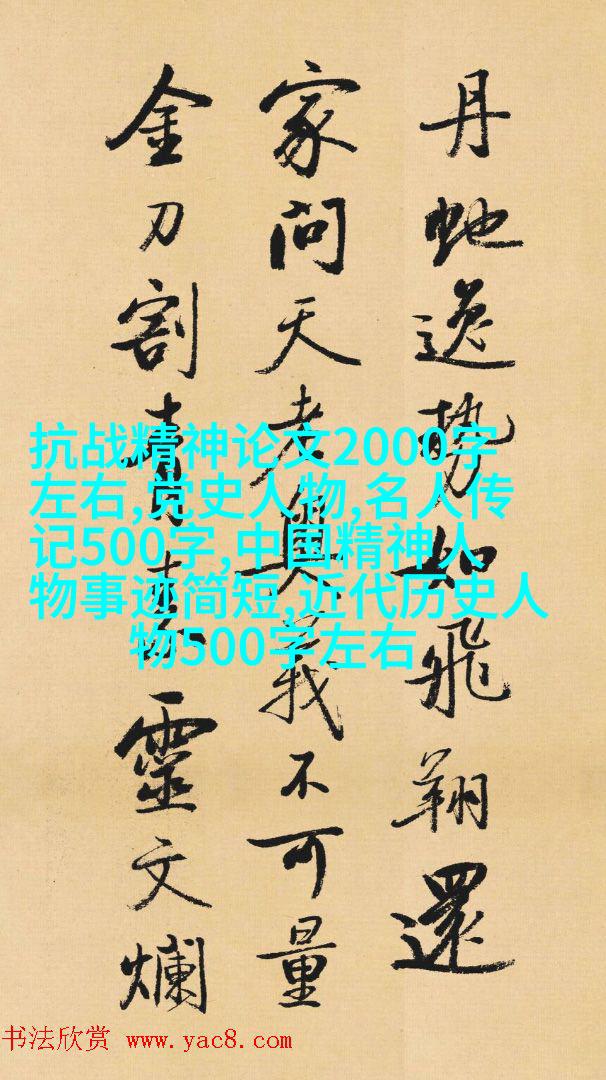 丹虵逸勢如飛翔還
家問天老奥義不可量
金刀割青素靈文爛
抗战精神论文2000字
左右,党史人物,名人传
记500字,中国精神人
物事迹简短,近代历史人
物500字左右
书法欣赏 www.yac8.com